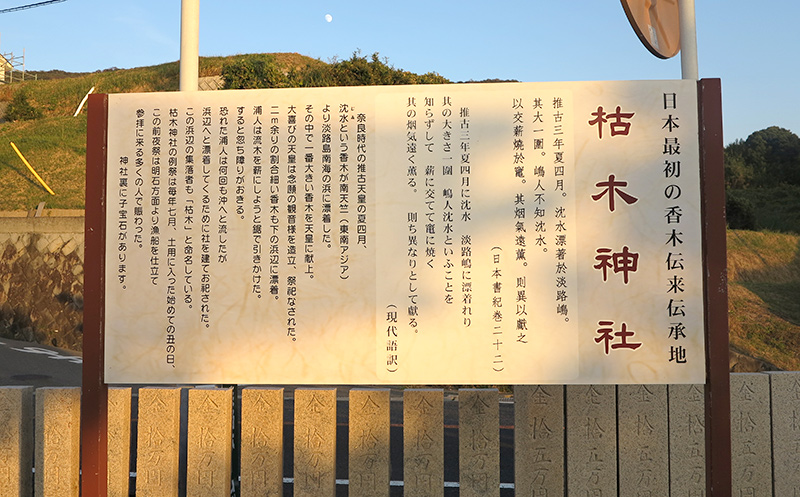 日本最初の香木伝来伝承地
枯木神社
推古三年夏四月。沈水漂着於淡路嶋。
其大一圍。嶋人不知沈水。
以交薪焼於竈。其烟氣遠薫。則異以獻之
(日本書紀巻二十二)
推古三年夏四月に沈水 淡路嶋に漂着れり
其の大きさ一圍 嶋人沈水といふことを
知らずして 薪に交てて竈に焼く
其の烟気遠く薫る。 則ち異なりとして献る。
(現代語訳)
奈良時代の推古天皇の夏四月、
沈水という香木が南天竺(東南アジア)
より淡路島南海の浜に漂着した。
その中で一番大きい香木を天皇に献上。
大喜びの天皇は念願の観音様を造立、祭祀なされた。
二m余りの割合細い香木も下の浜辺に漂着。
浦人は流木を薪にしようと鋸で引きかけた。
すると忽ち障りがおきる。
恐れた浦人は何回も沖へと流したが
浜辺へと漂着してくるために社を建てお祀された。
この浜辺の集落者も「枯木」と命名している。
枯木神社の例祭は毎年七月、土用に入った始めての丑の日、
この前夜祭は明石方面より漁船を仕立て
参拝に来る多くの人で賑わった。
神社裏に子宝石があります。
金拾万円
金拾万円
金拾万円
金拾万円
金拾万円
金拾万円
金拾万円
金拾五万
金拾五万
金拾五万円
金拾五万円
金拾五万円